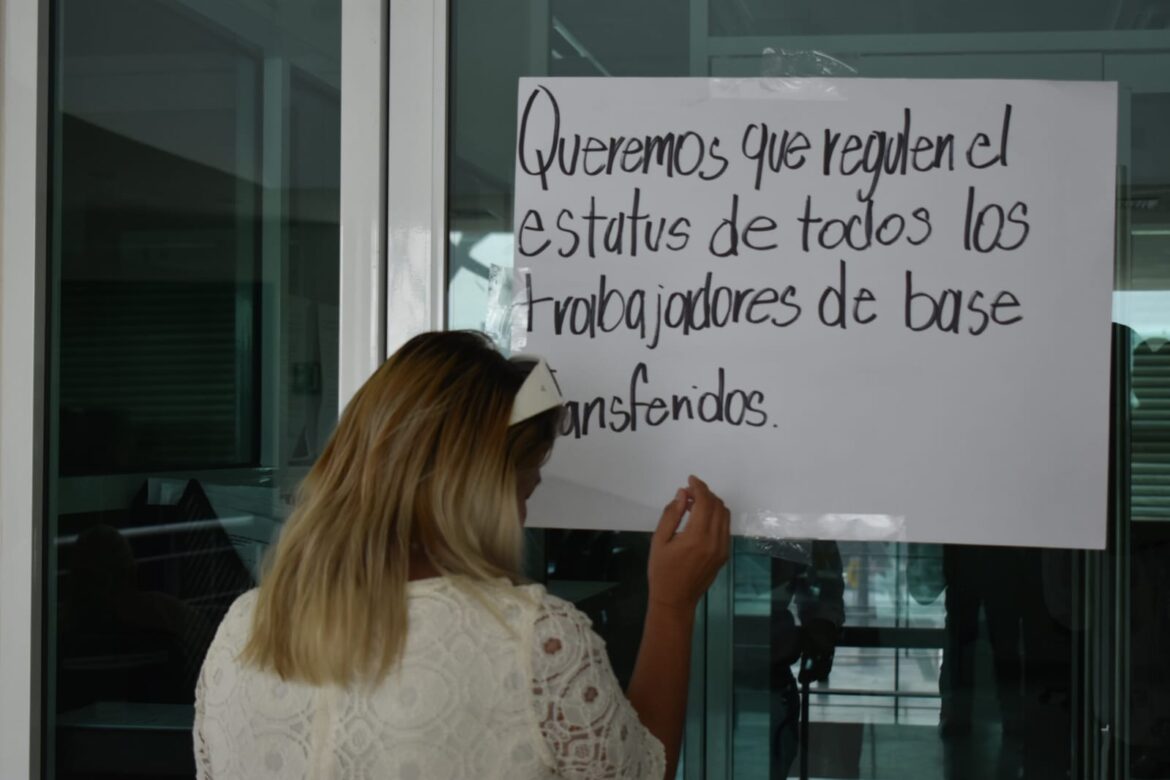 Queremos que regulen el
estatus de todos los
trabajadores de base
ansferidos.